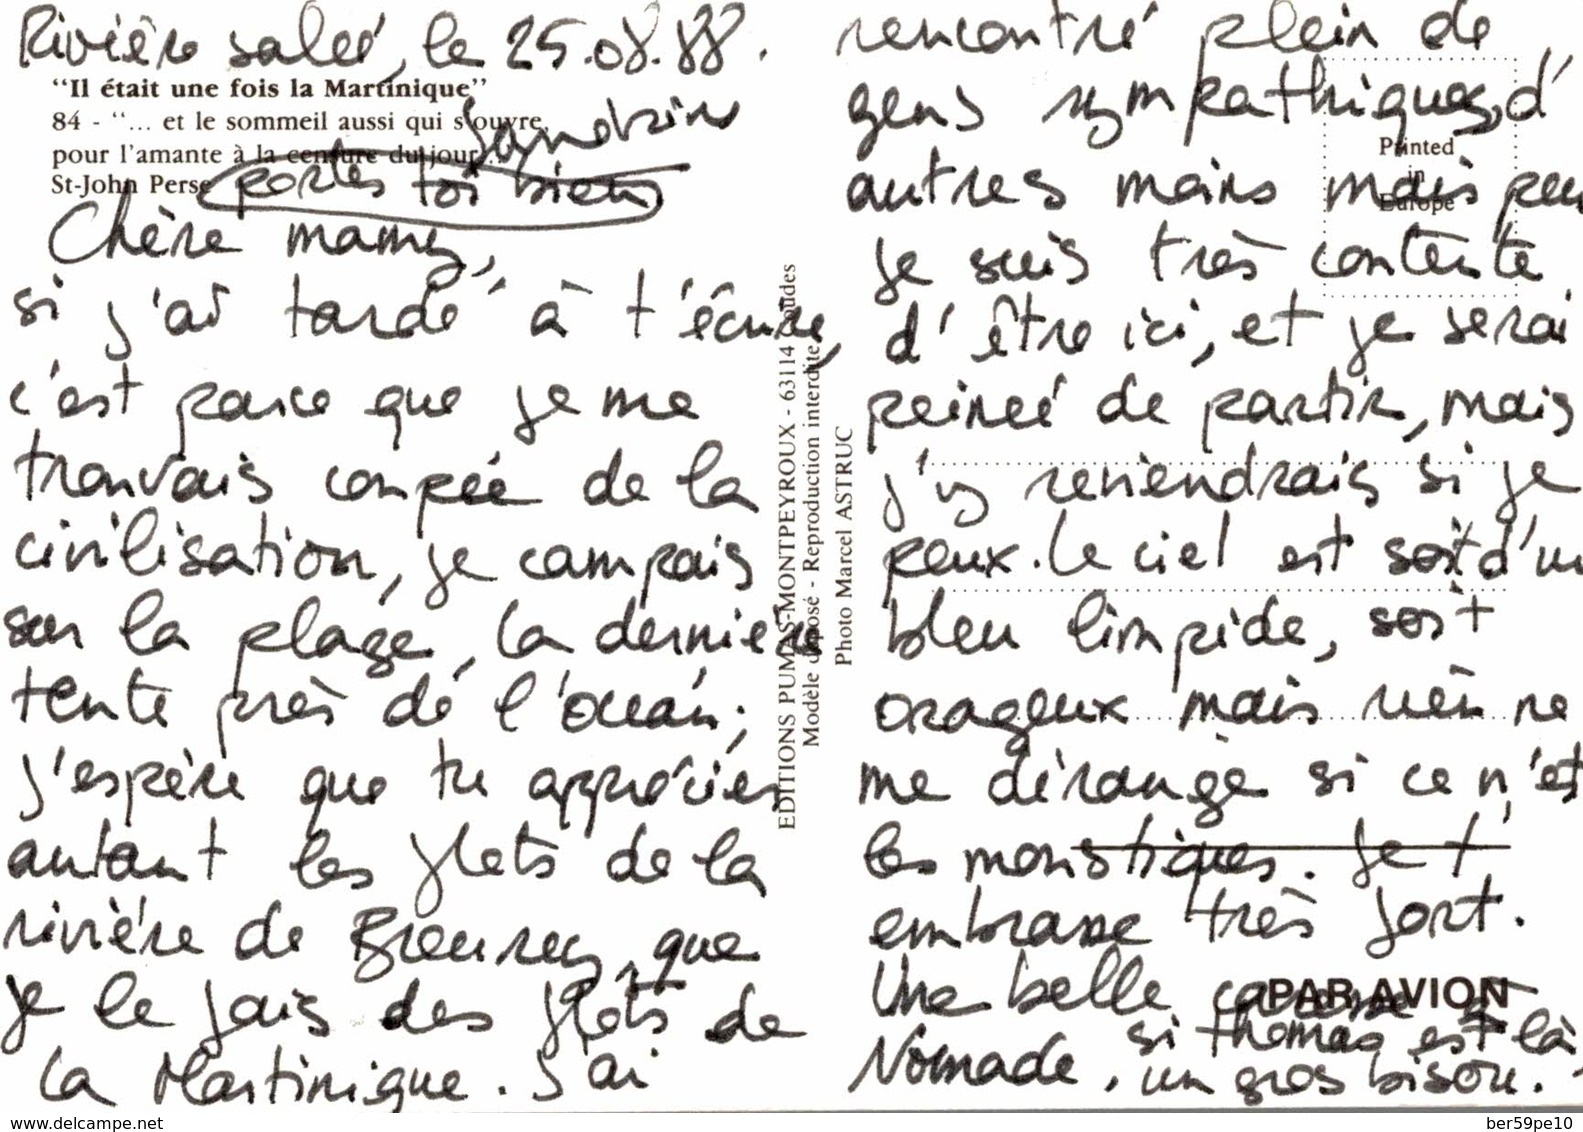 Rivière salée, le 25.08.88.
"Il était une fois la Martinique"
84 - "... et le sommeil aussi qui s'ouvre
pour l'amante à la censure du jour..."
St-John Perse
Sandrine
portes toi bien
Chère mamy,
si j'ai tardé à t'écrire,
c'est parce que je me
trouvais coupée de la
civilisation, je campais
sur la plage, la dernière
tente près de l'océan;
j'espère que tu apprécies
autant les flots de la
rivière de que
je le fais des flots de
la Martinique. J'ai
EDITIONS PUMAS-MONTPEYROUX - 63114 Coudes
Modèle déposé - Reproduction interdite
Photo Marcel ASTRUC
rencontré plein de
gens sympathiques, d'
autres moins mais peu
je suis très contente
d'être ici, et je serai
peineé de partir, mais
j'y reviendrais si je
peux. Le ciel est soit d'un
bleu limpide, soit
orageux mais rien ne
me dérange si ce n'est
les moustiques. Je t'
embrasse très fort.
Une belle caresse à
Nomade, si thomas est là
un gros bisou.
Printed
in
Europe
PAR AVION
delcampe.net
ber59pe10